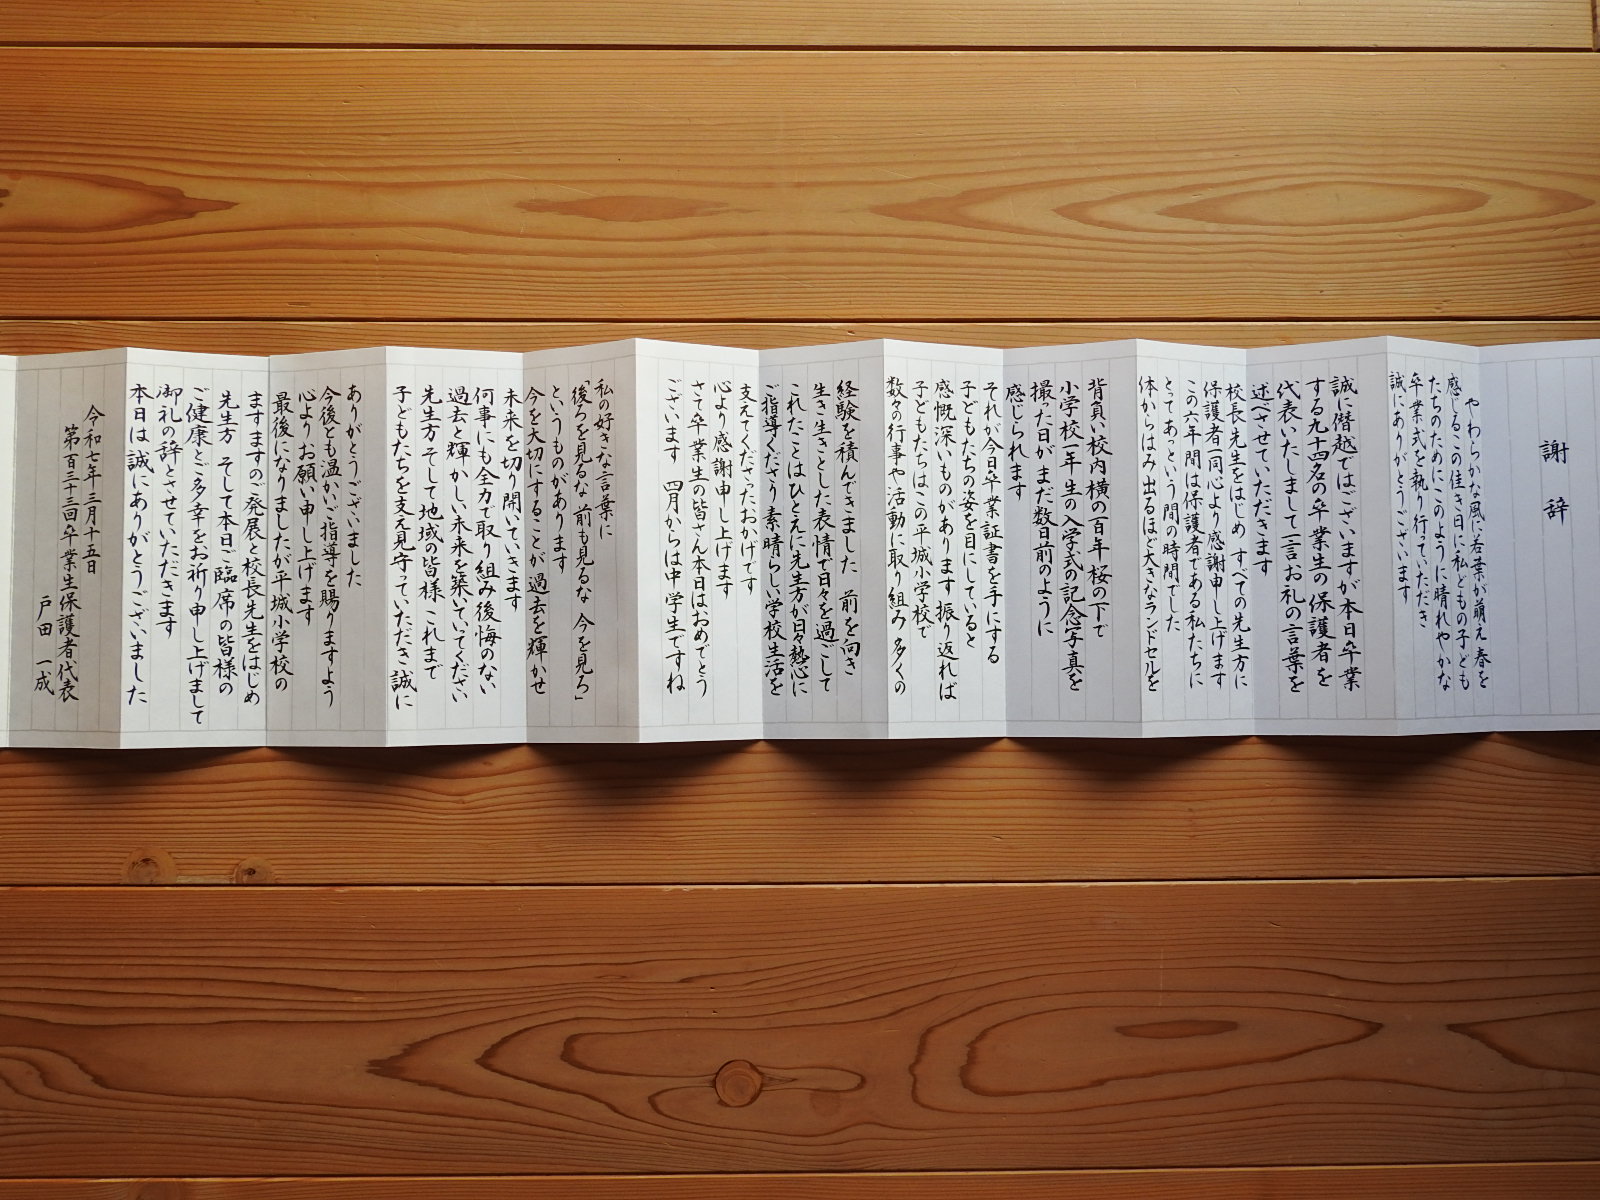 謝辞
やわらかな風に若葉が萌え春を
感じるこの佳き日に私どもの子ども
たちのためにこのように晴れやかな
卒業式を執り行っていただき
誠にありがとうございます
誠に僭越ではございますが本日卒業
する九十四名の卒業生の保護者を
代表いたしまして一言お礼の言葉を
述べさせていただきます
校長先生をはじめ すべての先生方に
保護者一同心より感謝申し上げます
この六年間は保護者である私たちに
とってあっという間の時間でした
体からはみ出るほど大きなランドセルを
背負い校内横の百年桜の下で
小学校一年生の入学式の記念写真を
撮った日がまだ数日前のように
感じられます
それが今日卒業証書を手にする
子どもたちの姿を目にしていると
感慨深いものがあります 振り返れば
子どもたちはこの平城小学校で
数々の行事や活動に取り組み 多くの
経験を積んできました 前を向き
生き生きとした表情で日々を過ごして
これたことはひとえに先生方が日々熱心に
ご指導くださり素晴らしい学校生活を
支えてくださったおかげです
心より感謝申し上げます
さて卒業生の皆さん本日はおめでとう
ございます 四月からは中学生ですね
私の好きな言葉に
「後ろを見るな 前も見るな 今を見ろ」
というものがあります
今を大切にすることが過去を輝かせ
未来を切り開いていきます
何事にも全力で取り組み後悔のない
過去と輝かしい未来を築いていてください
先生方 そして地域の皆様 これまで
子どもたちを支え見守っていただき 誠に
ありがとうございました
今後とも温かいご指導を賜りますよう
心よりお願い申し上げます
最後になりましたが平城小学校の
ますますのご発展と校長先生をはじめ
先生方 そして本日ご臨席の皆様の
ご健康とご多幸をお祈り申し上げまして
御礼の辞とさせていただきます
本日は誠にありがとうございました
令和七年三月十五日
第百三十三回卒業生保護者代表
戸田 一成